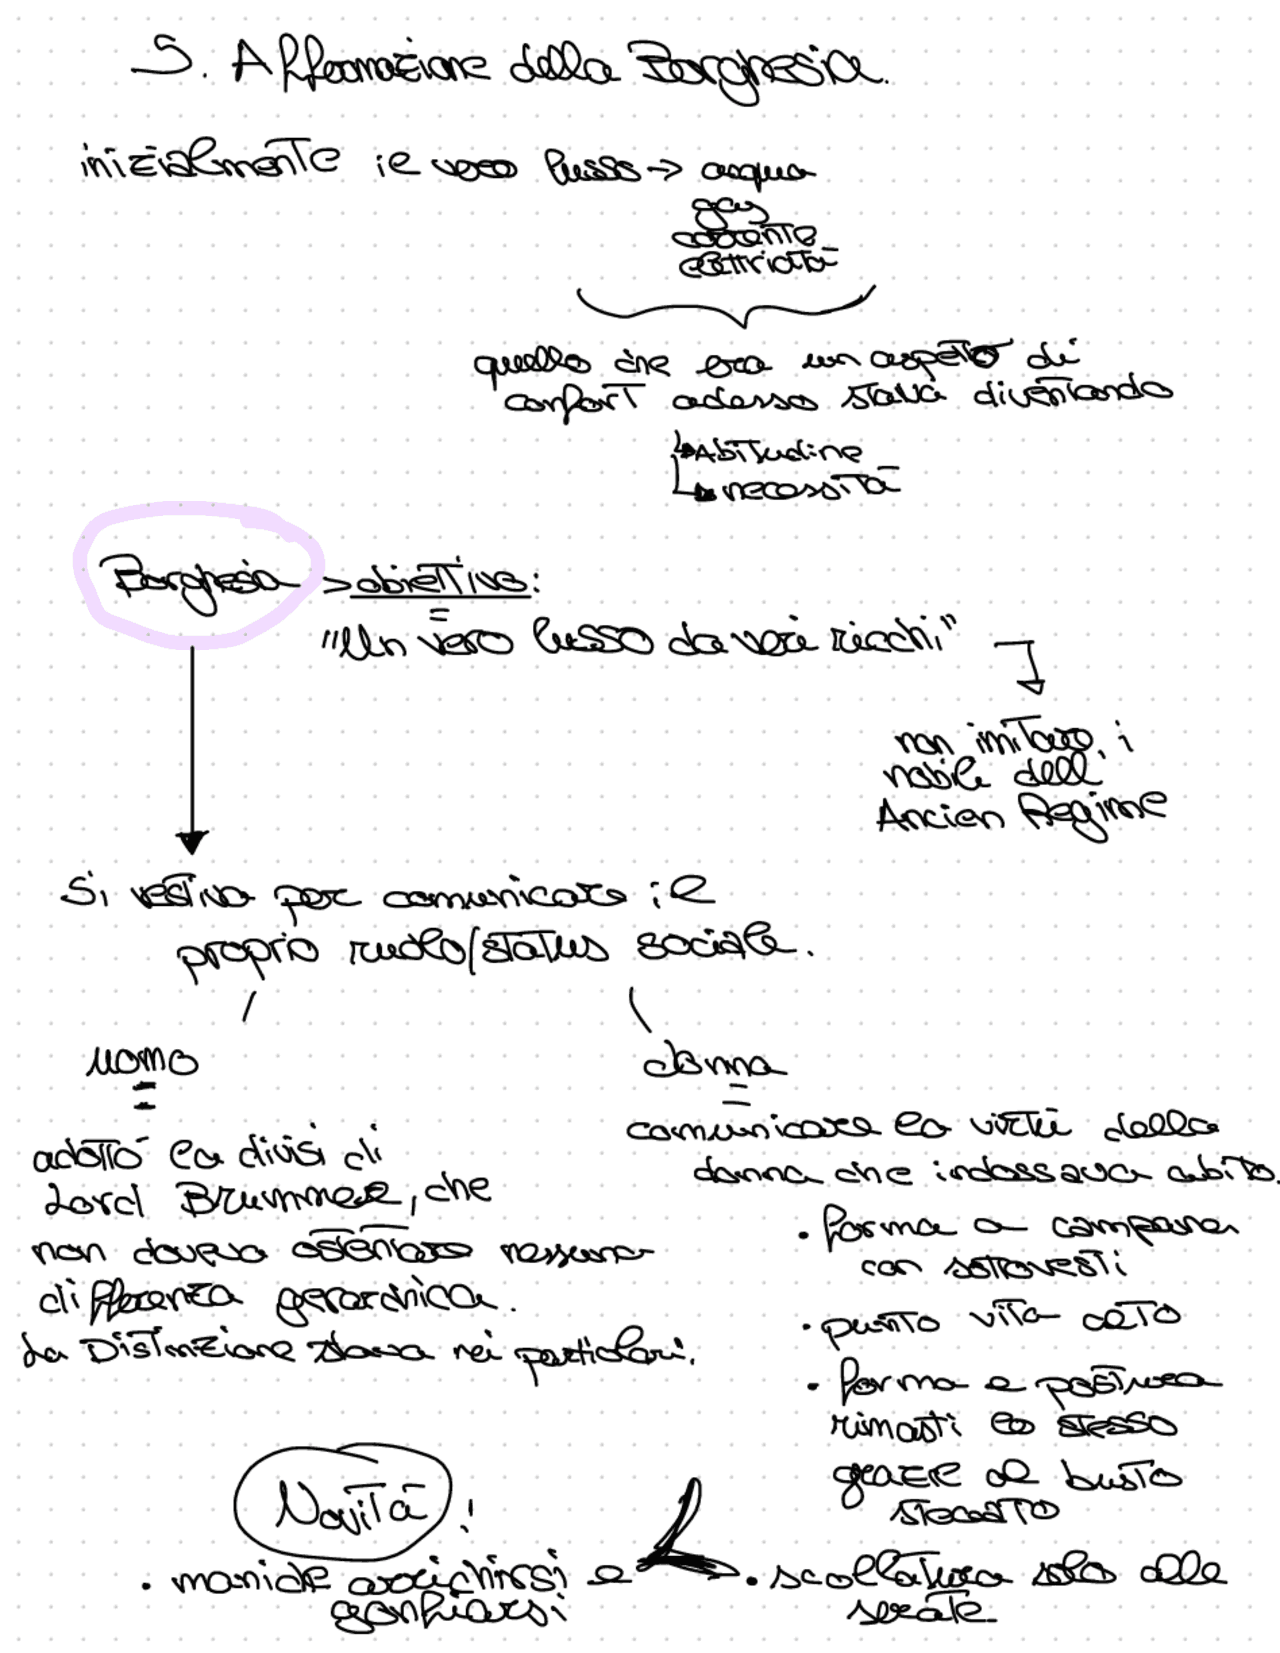 5. Affermazione della Borghesia.
inizialmente il vero lusso → acqua
gas
corrente
elettricità
quello che era un aspetto di
confort adesso stava diventando
↳ Abitudine
↳ necessità
Borghesia > obiettivo:
"Un vero lusso da veri ricchi"
non imitare i
nobile dell'
Ancien Regime
Si vestiva per comunicare il
proprio ruolo/status sociale.
uomo
donna
adottò la divisi di
Lord Brummel, che
non doveva ostentare nessuna
differenza gerarchica.
La Distinzione stava nei particolari.
comunicare la virtù della
donna che indossava abito.
• forma a campana
con sottovesti
• punto vita alto
• forma e postura
rimasti lo stesso
grazie al busto
steccato
Novità!
• maniche arricchirsi e
gonfiarsi
• scollatura solo alle
serate